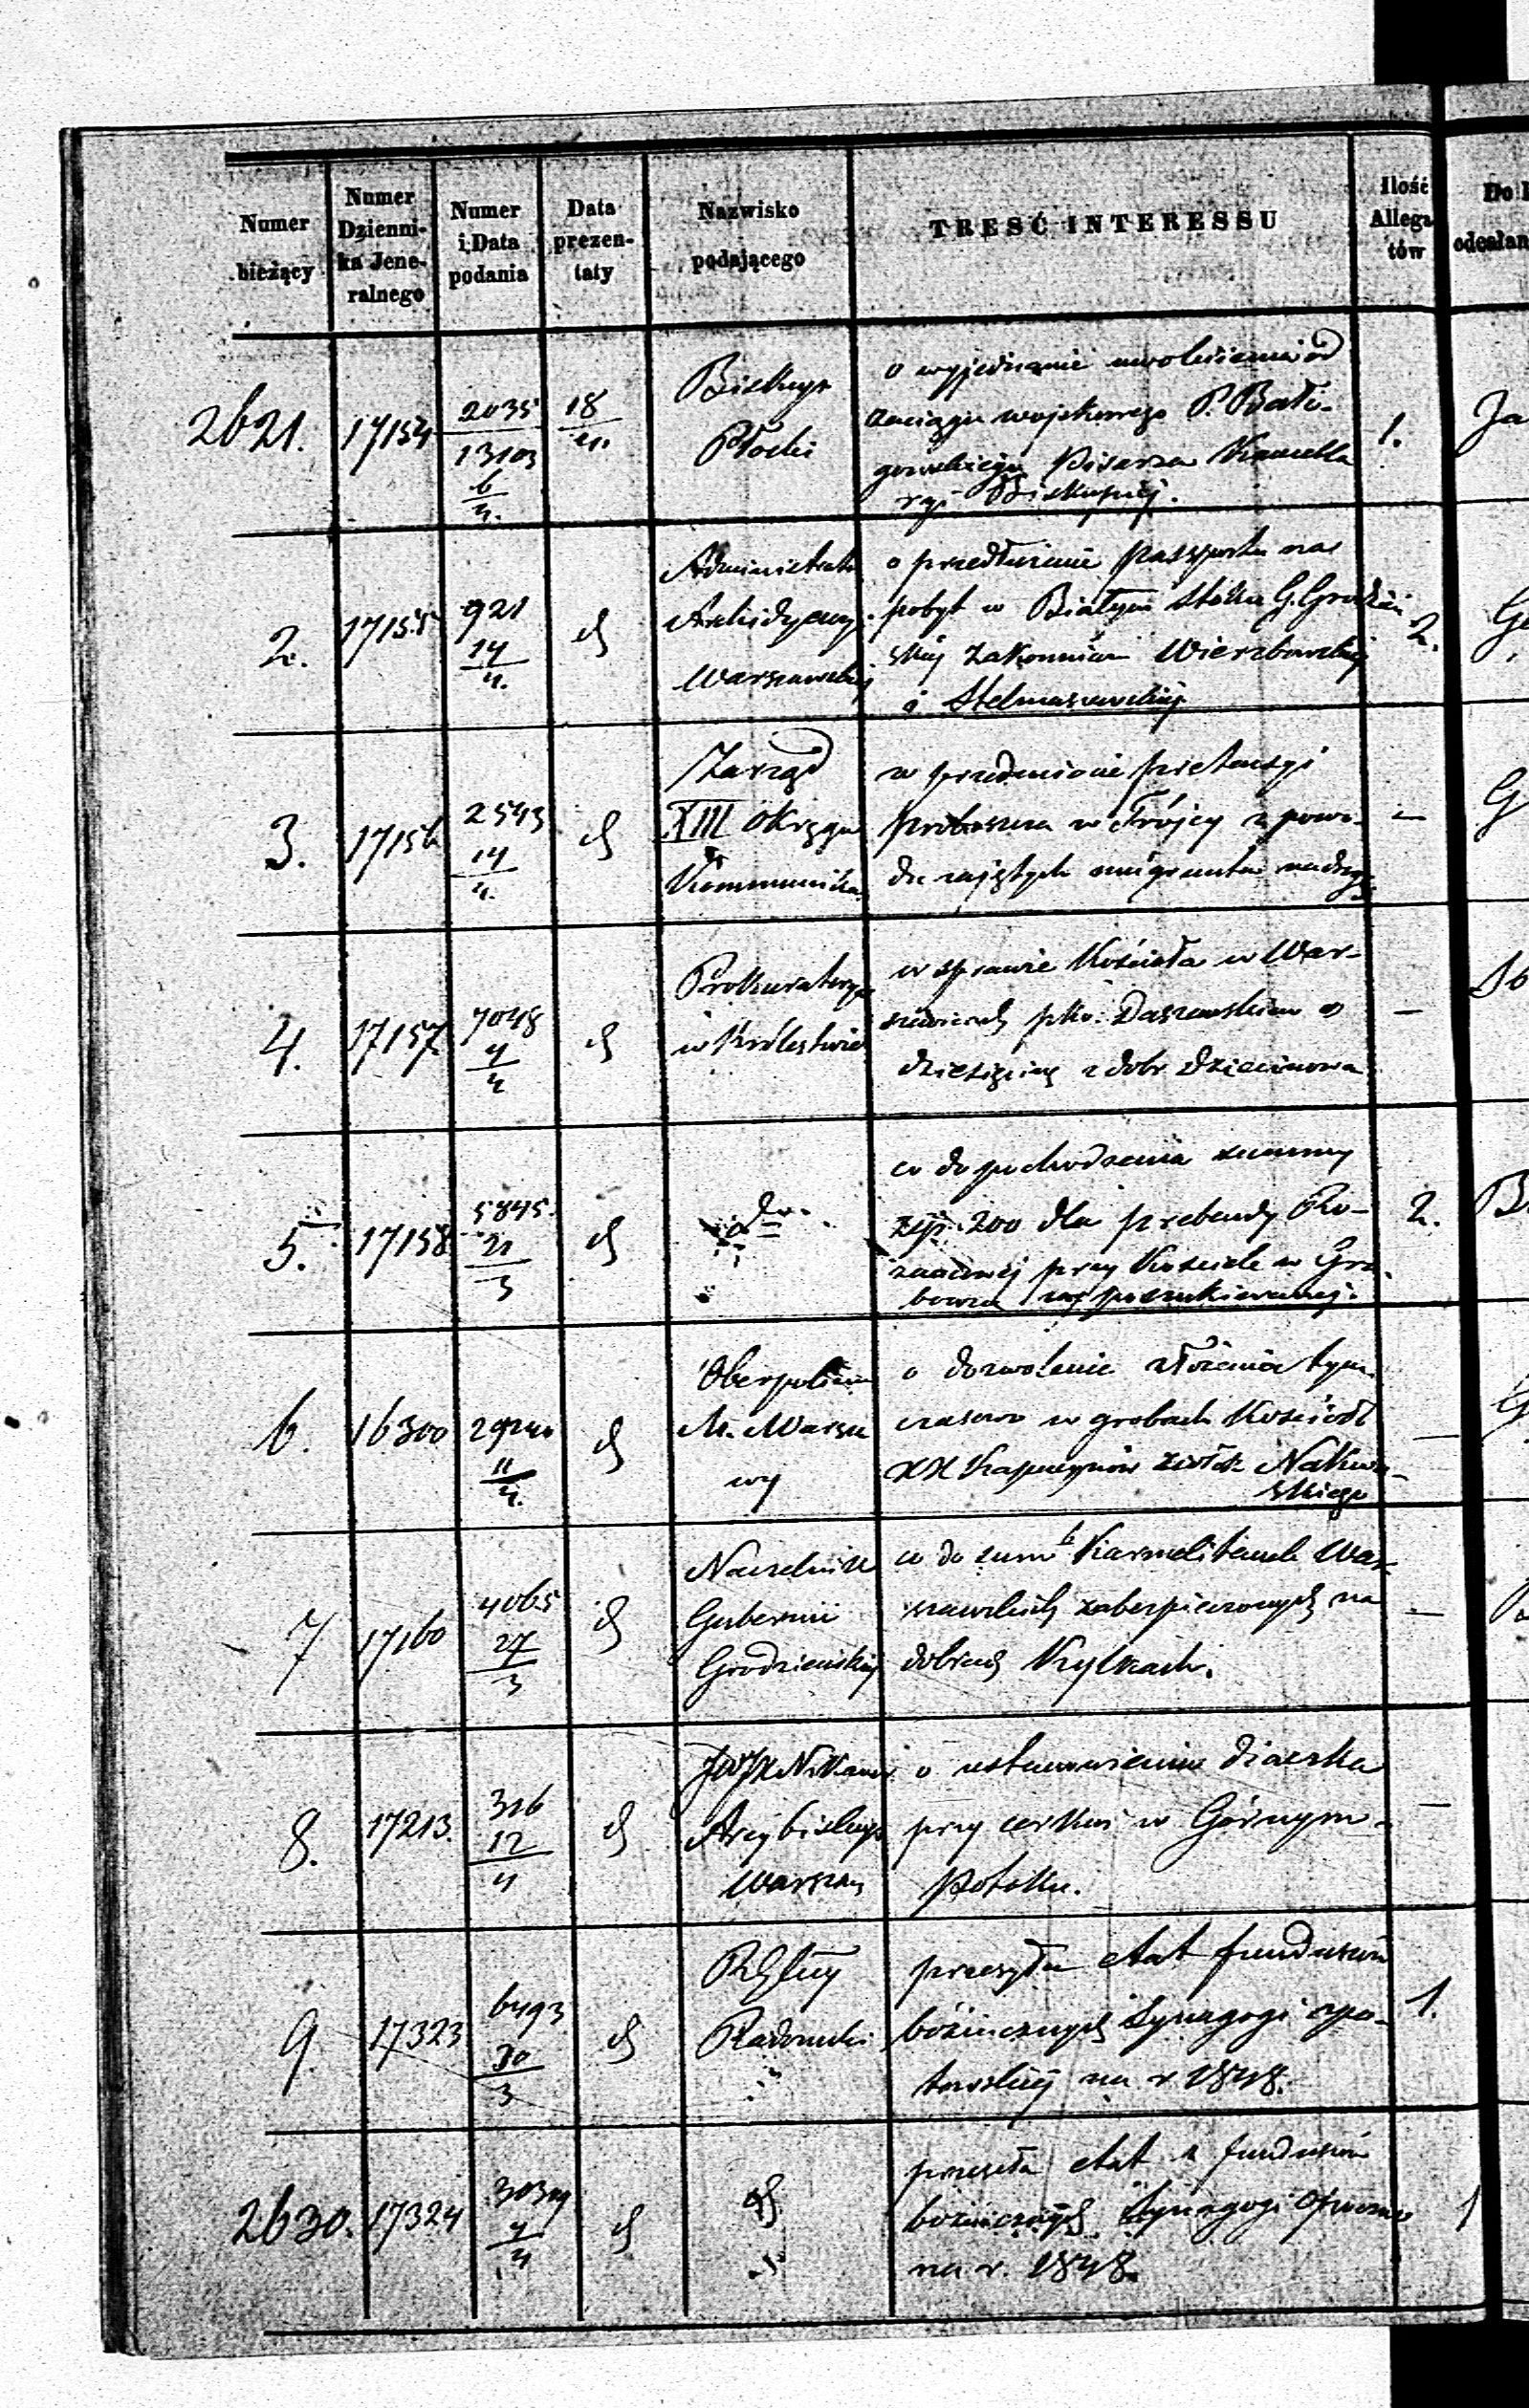 Numer bieżący
Numer Dzienni-ka Jene-ralnego
Numer i Data podania
Data prezen-taty
Nazwisko podającego
TRESĆ INTERESSU
Ilość Allega-tów
2621.
17154
2035
13103
6
4.
18
4.
Biskup
Płocki
o wyjednanie uwolnienia od
zaciągu wojskowego P. Bato-
gowskiego Pisarza Kancella
ryi Biskupiej.
1.
2.
17155
921
14
4.
Administrator
Archidyecezyi
Warszawskiej
o przedłużenie passportu na
pobyt w Białym stoku G. Grodzień
skiej Zakonnicom Wierzbowskiej
i Stelmaszewskiej
2.
3.
17156
2543
14
4.
Zarząd
XIII Okręgu
Kommunika.
w przedmiocie pretensyi
proboszcza w Trójcy z powo-
du zajętych gruntu
—
4.
17157
7048
4
4
Prokuratorya
w Królestwie
w sprawie Kościoła w War-
szewicach pko: Daszewskiemu o
dziesięcinę z dobr Dziecinowa
—
5.
17158
5845.
21
3
do.
co do pochodzenia summy
złp. 200 dla prebendy Ró-
żańcowej przy Kościele w Gra-
bowcu poszukiwanej.
2.
6.
16300
29240
11
4.
Oberpolicm
M. Warsza
wy
o dozwolenie złożenia tym
czasowo w grobach Kościoła
XX Kapucynów zwłok Nakwa-
skiego
—
7
17160
4065
27
3
Naczelnik
Gubernii
Grodzieńskiej
co do sum b Karmelitanek War-
szawskich zabezpieczonych na
dobrach
—
8.
17213.
316
12
4
JWJX Nikanor
Arcybiskup
Warszaw
o ustanowieniu diaczka
przy cerkwi w Górnym-
potoku.
—
9.
17323
6493
30
3
RGbny
Radomski
przesyła etat funduszów
bóżniczych Synagogi opa-
towskiej na r 1848.
1.
2630.
17324
4
4
przesyła etat funduszów
bóżniczych Synagogi Opoczno
na r. 1848.
1